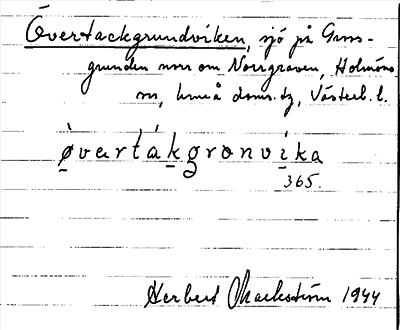 Övertackgrundviken, sjö på Gros-
grunden norr om Norrgraven, Holmöns
sn, Umeå doms. tg, Västerb. l.
ø̀vərtákgronvika
365.
Herbert Markström 1944